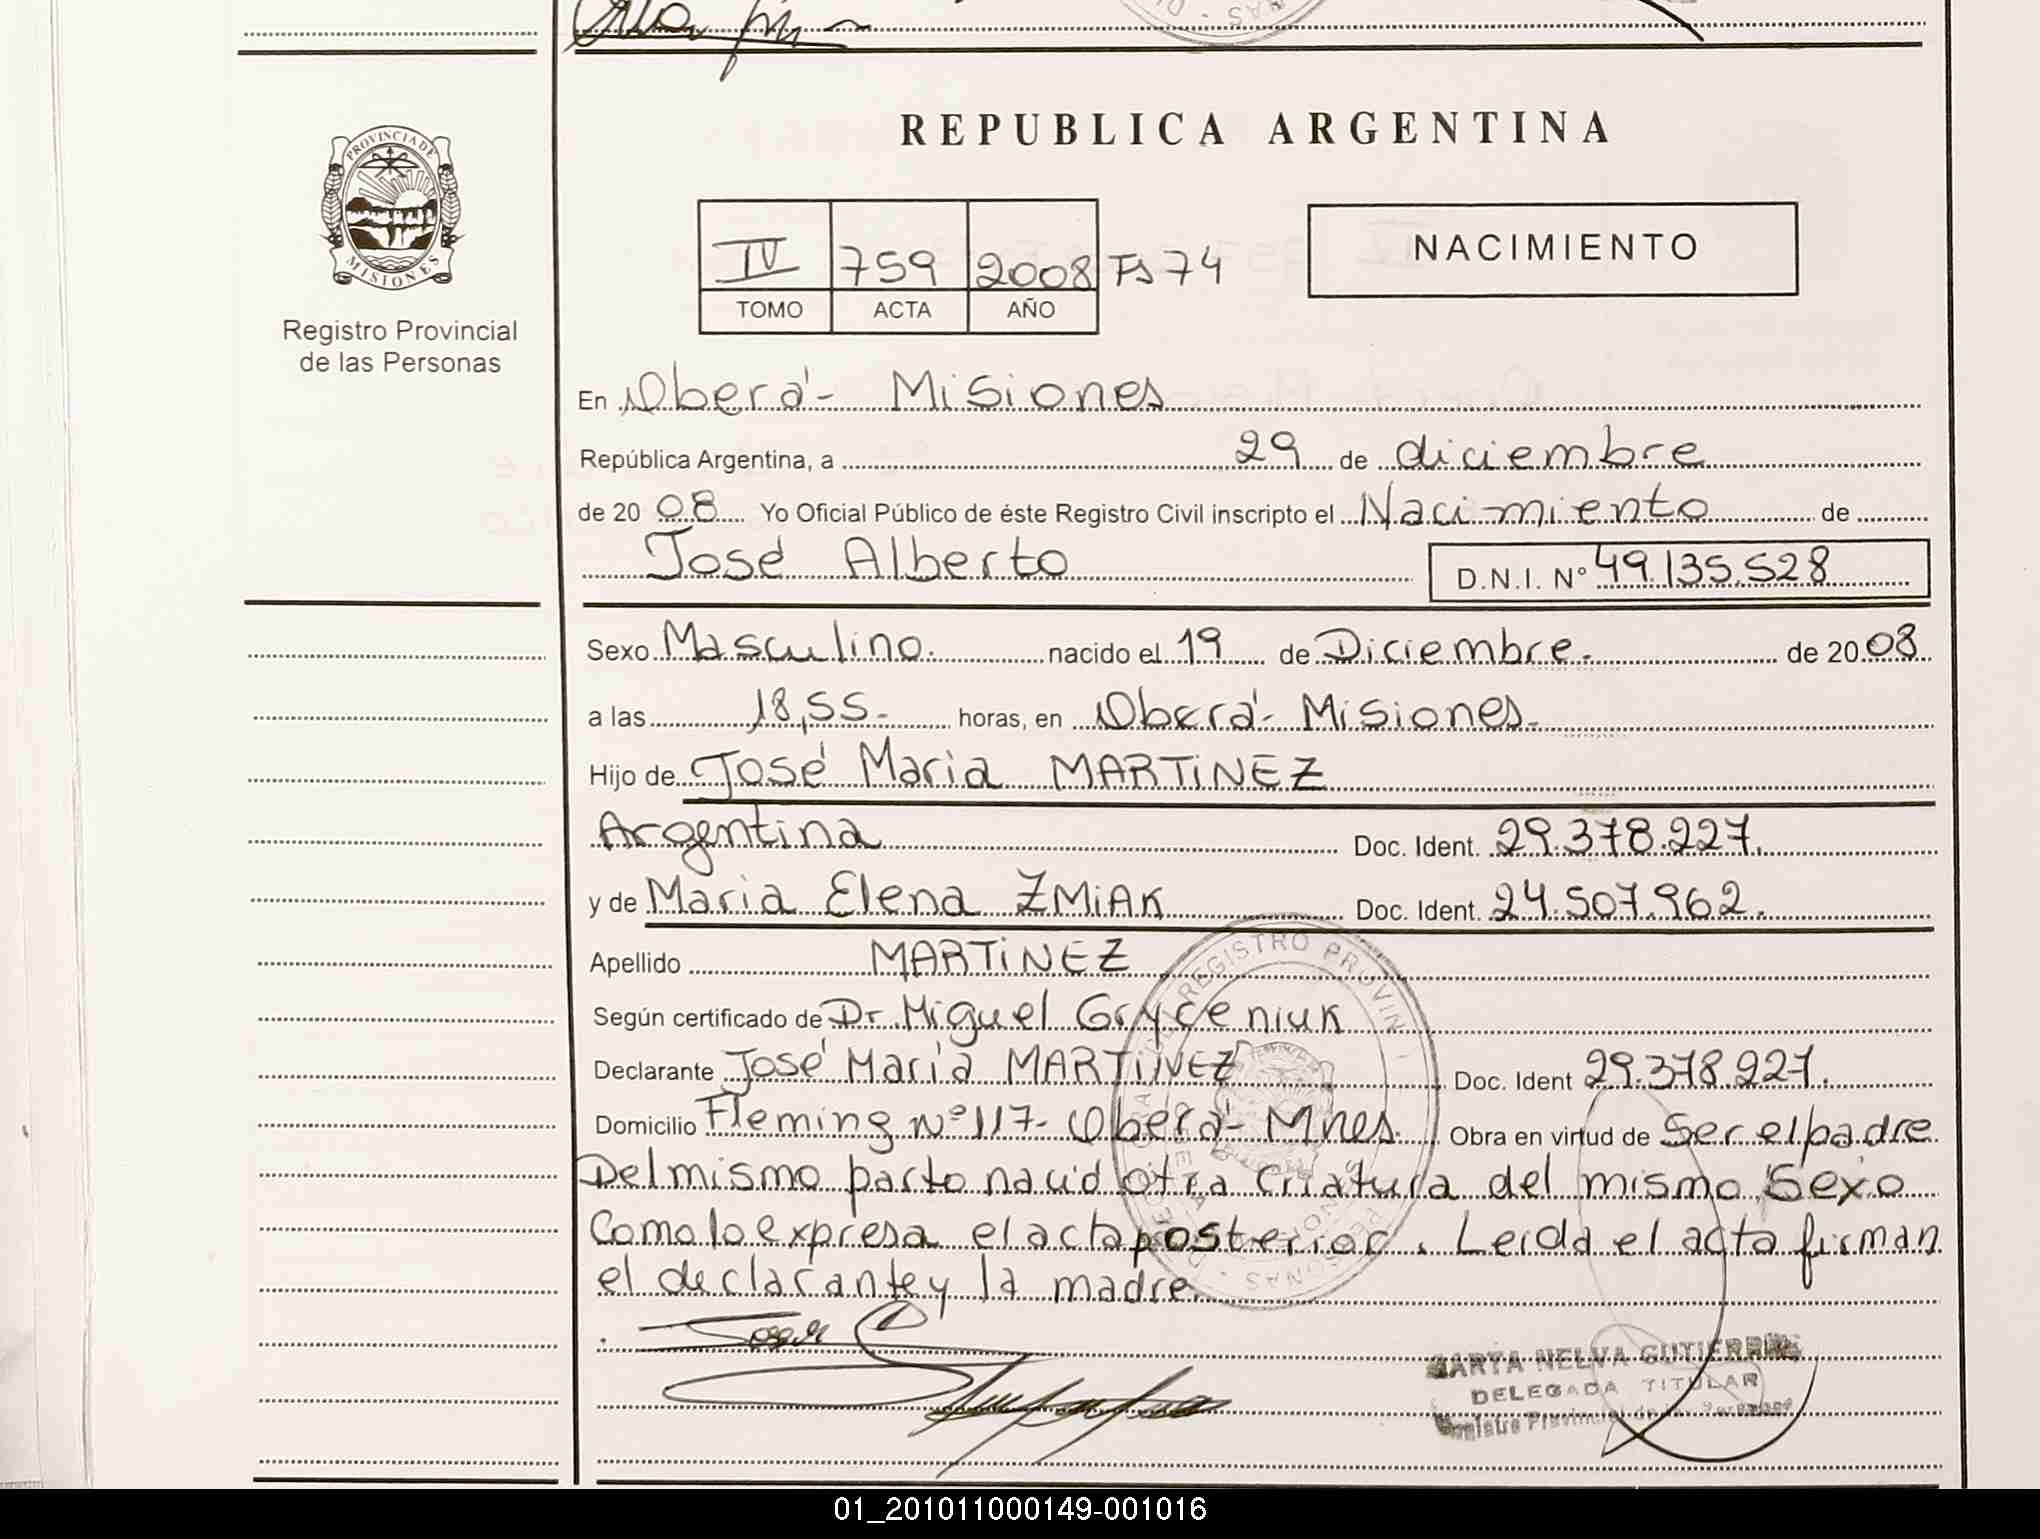 PROVINCIA DE
MISIONES
Registro Provincial
de las Personas
REPUBLICA ARGENTINA
IV 759 2008 Fs 74
TOMO ACTA AÑO
NACIMIENTO
En Oberá - Misiones
República Argentina, a 29 de diciembre
de 2008 Yo Oficial Público de éste Registro Civil inscripto el Nacimiento de
José Alberto D.N.I. Nº 49.135.528
Sexo Masculino. nacido el 19 de Diciembre. de 2008
a las 18,55- horas, en Oberá - Misiones.
Hijo de José Maria MARTINEZ
Argentina Doc. Ident. 29.378.227.
y de Maria Elena ZMIAK Doc. Ident. 24.507.962.
Apellido MARTINEZ
Según certificado de Dr. Miguel Gryceniuk
Declarante José Maria MARTINEZ Doc. Ident 29.378.227.
Domicilio Fleming Nº 117- Oberá - Mnes. Obra en virtud de Ser el padre
Del mismo parto nació otra criatura del mismo Sexo
Como lo expresa el acta posterior. Leida el acta firman
el declarante y la madre.
MARTA NELVA GUTIERREZ
DELEGADA TITULAR
Registro Provincial de las Personas
01_201011000149-001016